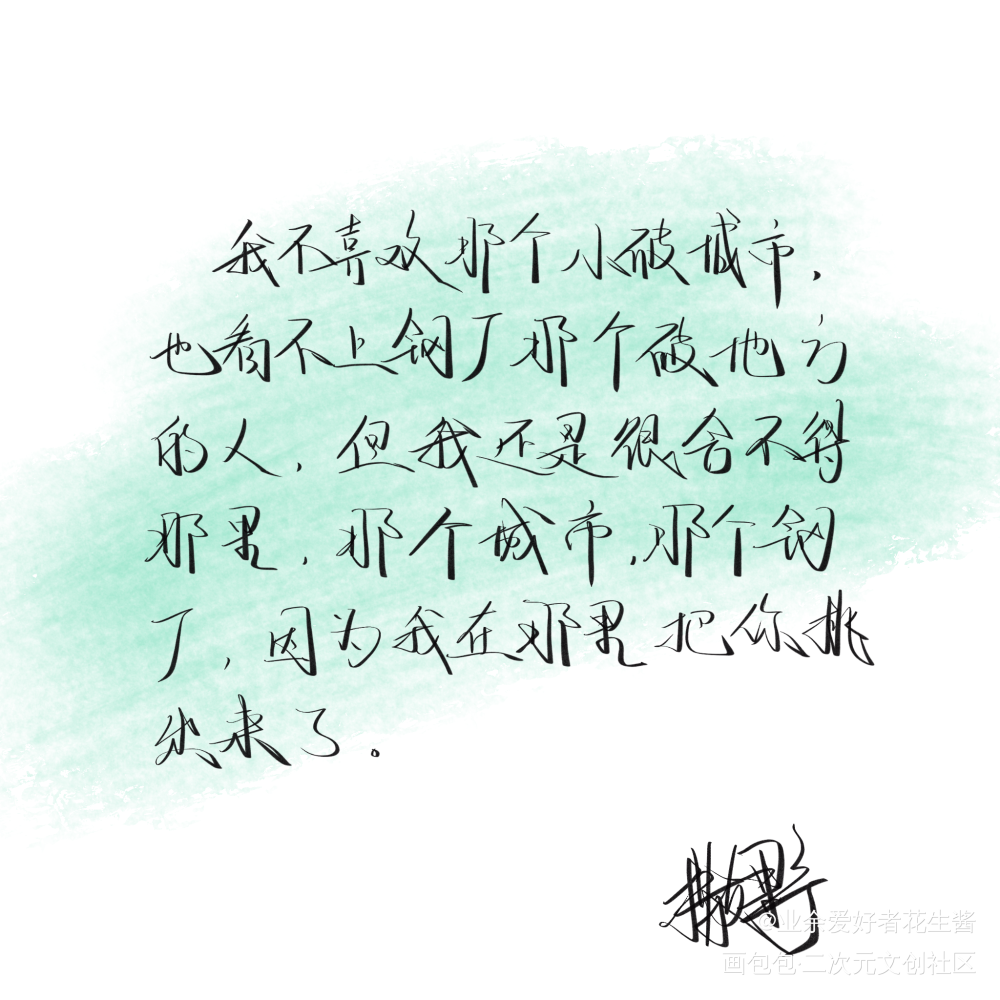 我不喜欢那个小破城市，
也看不上钢厂那个破地方
的人，但我还是很舍不得
那里，那个城市，那个钢
厂，因为我在那里把你挑
出来了。
撒野
@业余爱好者花生酱
画包包·二次元文创社区